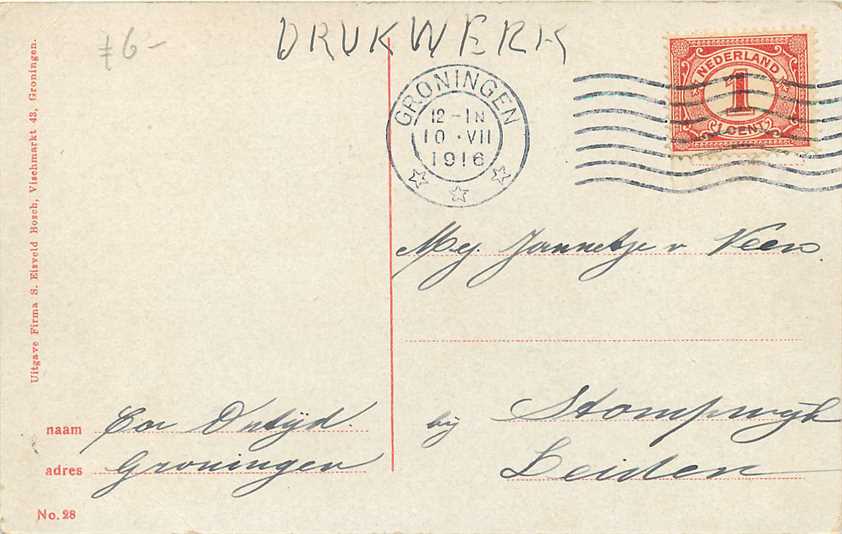 DRUKWERK
GRONINGEN
12-1N
10 · VII
1916
NEDERLAND
1
1 CENT
Mej. Jannetje v Veen.
bij Stompwijk
Leiden
naam Cor
adres Groningen
No. 28
Uitgave Firma S. Eisveld Bosch, Vischmarkt 43, Groningen.